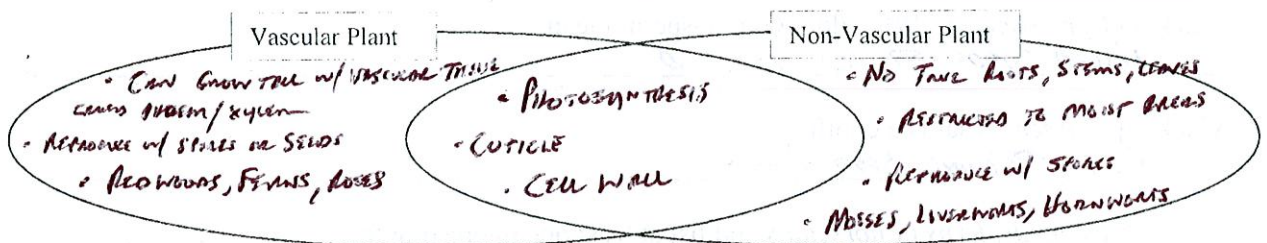 Vascular Plant
• CAN GROW TALL W/ VASCULAR TISSUE
CALLED PHLOEM/XYLEM
• REPRODUCE W/ SPORES OR SEEDS
• REDWOODS, FERNS, ROSES
• PHOTOSYNTHESIS
• CUTICLE
• CELL WALL
Non-Vascular Plant
• NO TRUE ROOTS, STEMS, LEAVES
• RESTRICTED TO MOIST AREAS
• REPRODUCE W/ SPORES
• MOSSES, LIVERWORTS, HORNWORTS